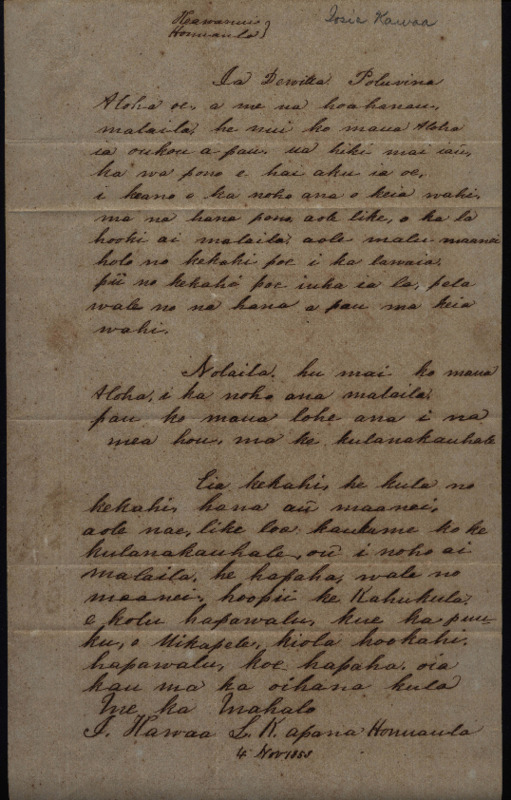 Keawanui
Honuaula
Josia Kawaa
Ia Dewitta Poluvina
Aloha oe, a me na hoahanau,
malaila, he nui ko maua Aloha
ia oukou a pau. ua hiki mai iaū,
ka wa pono e hai aku ia oe,
i keano o ka noho ana o keia wahi,
ma na hana pono aole like, o ka la
hooki ai malaila, aole malu maanei
holo no kekahi poe i ka lawaia,
pii no kekahi poe iuka ia la, pela
wale no na hana a pau ma keia
wahi.
Nolaila, hu mai ko maua
Aloha, i ka noho ana malaila,
pau ko maua lohe ana i na
mea hou, ma ke kulanakauhale
Eia kekahi, he kula no
kekahi, hana aū maanei,
aole nae, like loa kaukame ko ke
kulanakauhale, oū i noho ai
malaila, he hapaha, wale no
maanei, hoopii ke Kahukula,
e kolu hapawalu, kue ka puu-
ku, o Mikapele, kiola hookahi,
hapawalu, koe hapaha, oia
kau ma ka oihana kula
Me ka Mahalo
J. Kawaa L. K. apana Honuaula
4 Nov 1858